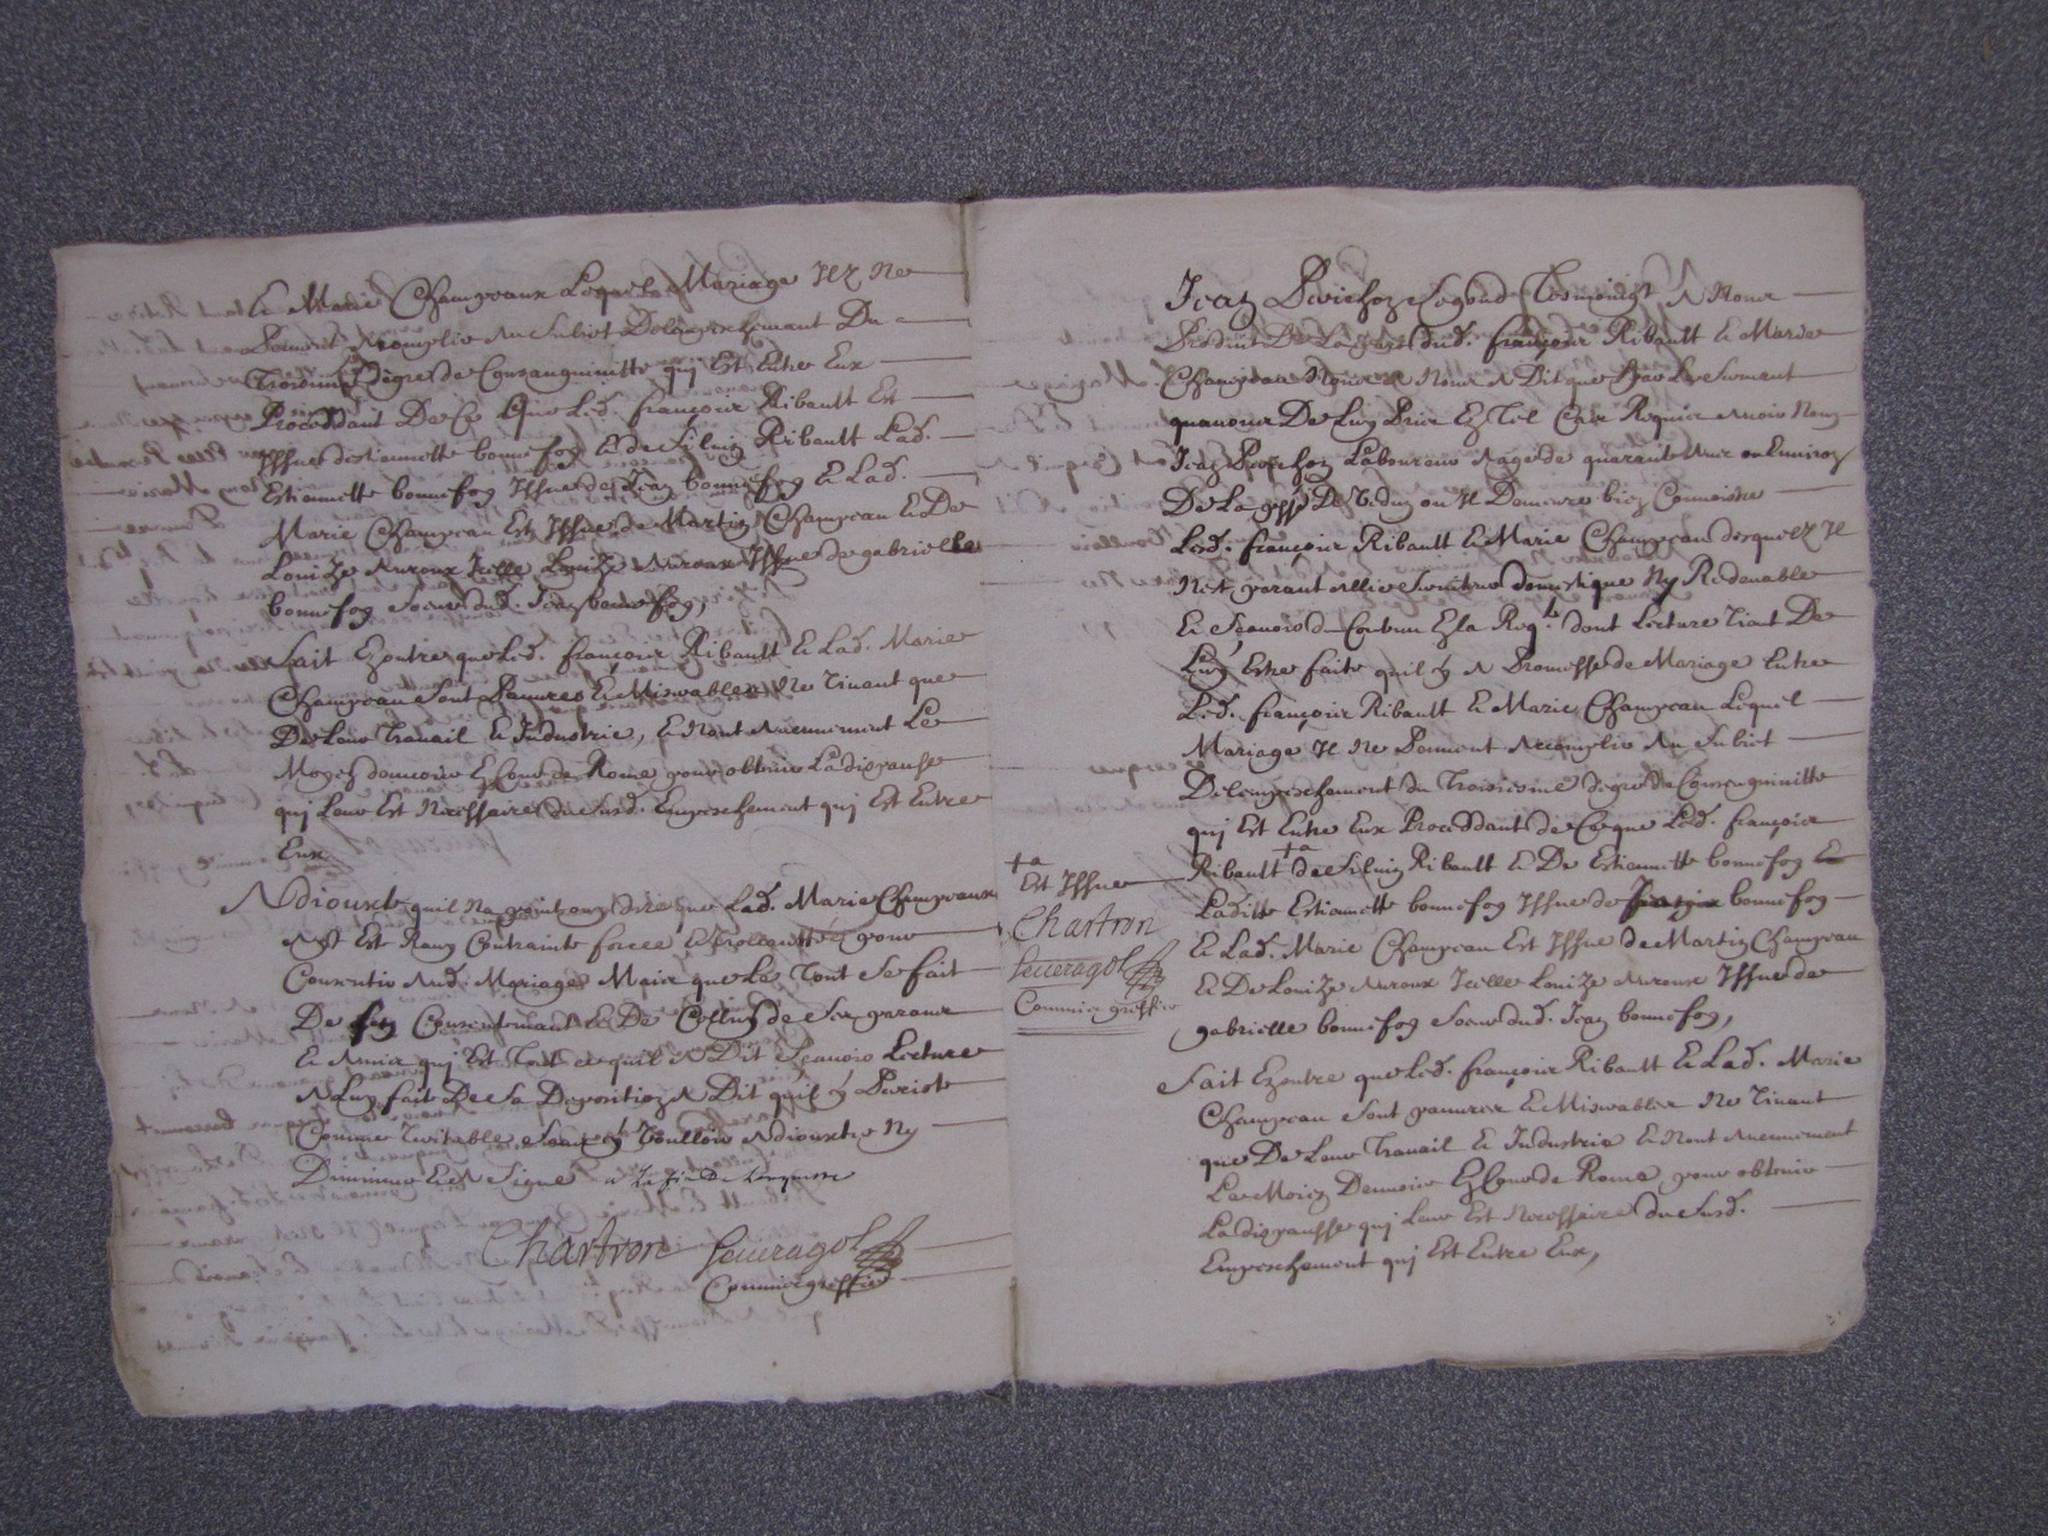 Et Marie Champeaux Lequel Mariage Ilz Ne
Peuvent Acomplir Au Subiet De lenpeschemant Du
Troisiesme Degre de Consanguinitte quj Est Entre Eux
Proceddant De Ce Que Led. françois Ribault Est
Issue destiennette bonnefoy Et de Silvin Ribault Lad.
Estiennette bonnefoy Issue de Jean bonnefoy Et Lad.
Marie Champeau Est Issue de Martin Champeau Et De
Louize Auroux Icelle Louize Auroux Issue de gabrielle
bonnefoy Soeur dud. Jean bonnefoy,
Sait Exoutre que Led. françois Ribault Et Lad. Marie
Champeau Sont Pauvres Et Miserables Ne Vivant que
De Leur Travail Et Industrie, Et Nont Aucunement Le
Moyen denvoier En Cour de Rome pour obtenir La dispansse
quj Leur Est Necessaire du Susd. Empeschement quj Est Entre
Eux
Adjouxte quil Na point ouy dire que Lad. Marie Champeaux
Ayt Este Contrainte forcee pour
Consentir Aud. Mariage Mais que Le Tout Se fait
De Son Consentemant Et De Celluy de Ses parans
Et Amis quj Est Tout ce quil A Dit Scauoir Lecture
A Luy fait De Sa Deposition A Dit quil y Persiste
Comme Veritable Sans y Voulloir Adiouxter Ny
Diminuer Et A Signe
Chartron Seueragol
Commis greffier
Jean Second Tesmoingt A Nous
Produit De La part dud. françois Ribault Et Marie
Champeau A Dit que Par Le Sermant
quauons De Luy Prix En Tel Cas Requis Auoir Nom
Jean Laboureur Age de quarante Ans ou Enuiron
De La Paroisse De ou Il Demeure bien Connoistre
Lesd. françois Ribault Et Marie Champeau desquelz Il
Nest parant Allie Seruiteur domestique Ny Redeuable
Et Scauoir Contenu En la Reqte dont Lecture Vient De
Luy Estre faite quil y A Promesse de Mariage Entre
Led. françois Ribault Et Marie Champeau Lequel
Mariage Il Ne Peuuent Accomplir Au Subiet
De lenpeschement du Troisiesme degre de Consenguinitte
quj Est Entre Eux Proceddant de Ce que Led. françois
Ribault +a de Silvin Ribault Et De Estiennette bonnefoy Et
Laditte Estiennette bonnefoy Issue de bonnefoy
Et Lad. Marie Champeau Est Issue de Martin Champeau
Et De Louize Auroux Icelle Louize Auroux Issue de
gabrielle bonnefoy Soeur dud. Jean bonnefoy,
Sait Exoutre que Led. françois Ribault Et Lad. Marie
Champeau Sont pauvres Et Miserables Ne Vivant
que De Leur Travail Et Industrie Et Nont Aucunement
Le Moien Denuoier En Cour de Rome pour obtenir
La dispansse quj Leur Est Necessaire du Susd.
Empeschement quj Est Entre Eux,
+a
Est Issue
Chartron
Seueragol
Commis greffier